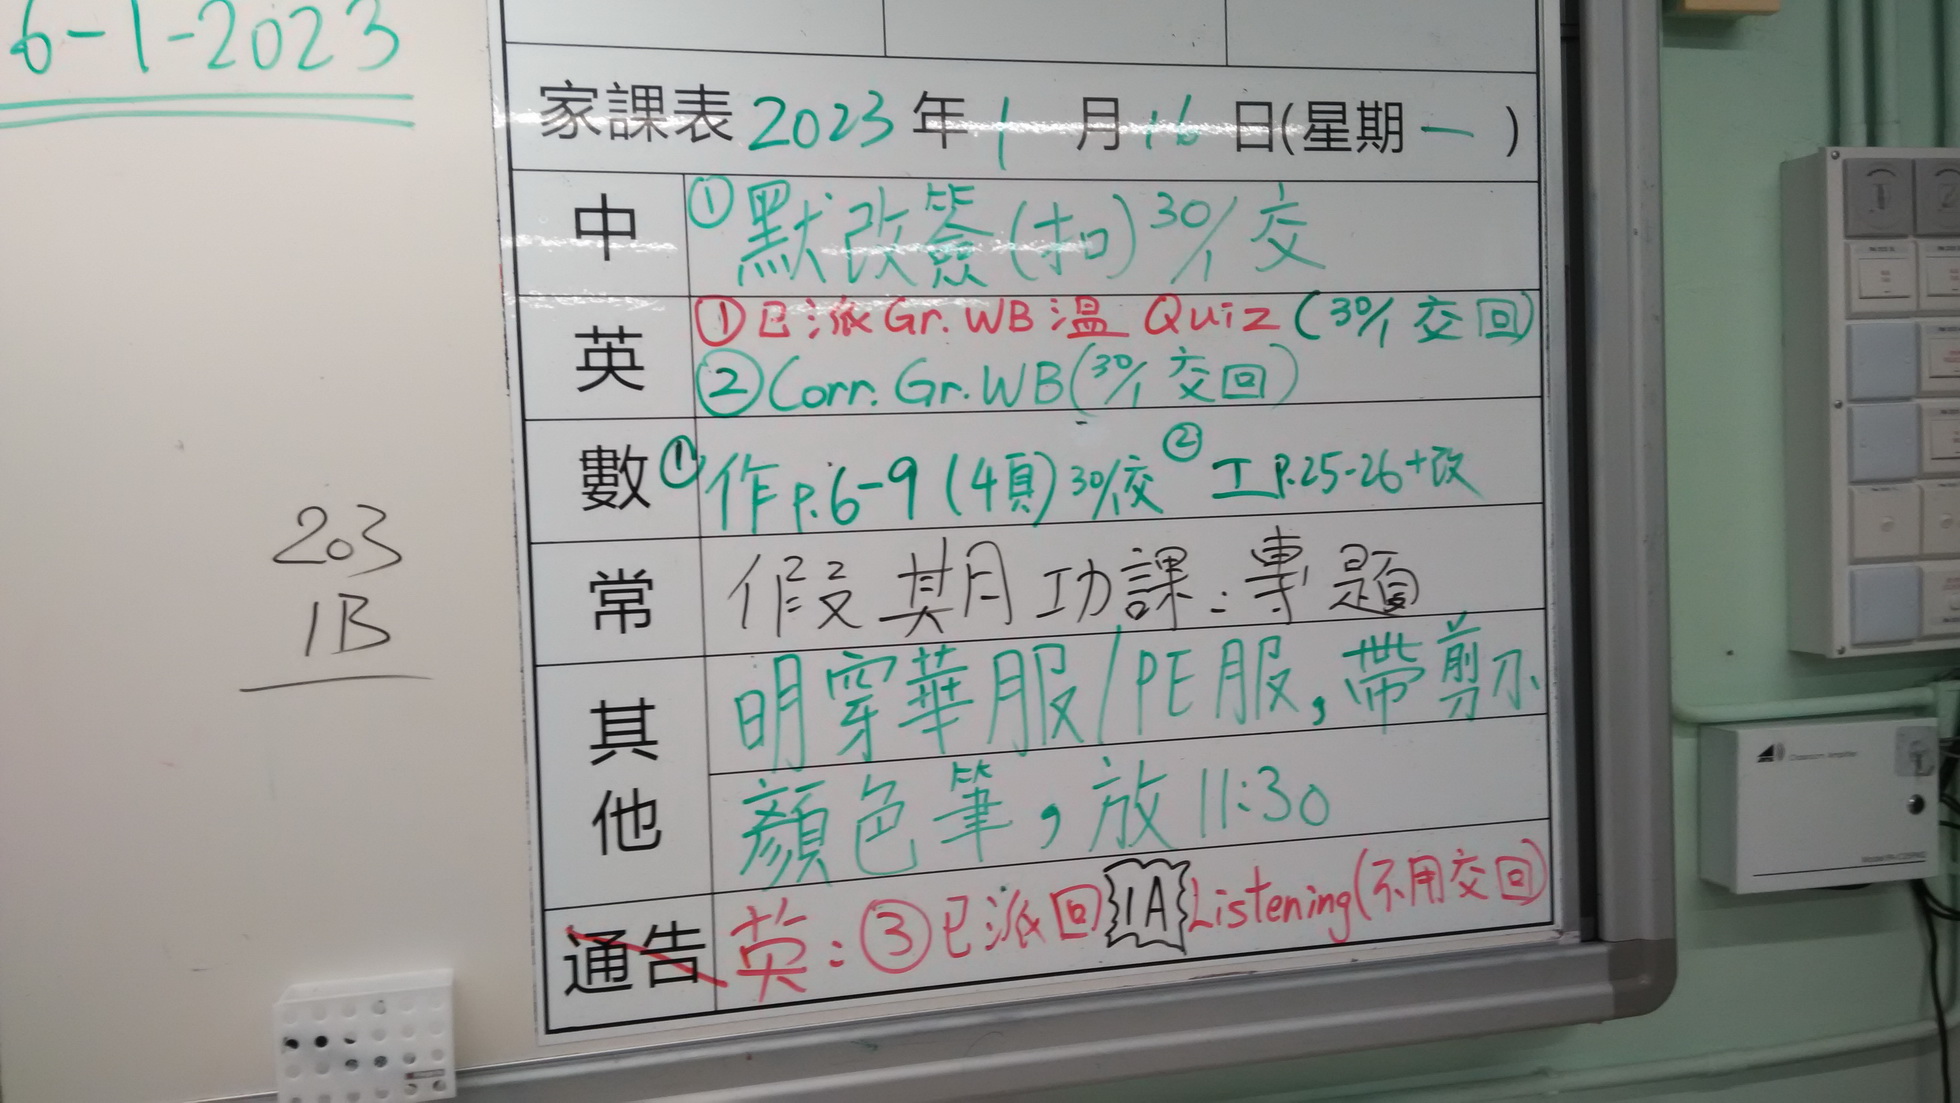 6-1-2023
家課表 2023 年 1 月 16 日(星期 一 )
中 ①默改簽(扣) 30/1 交
英 ①已派Gr.WB 溫 Quiz (30/1 交回)
②Corr. Gr.WB(30/1 交回)
數 ①作p.6-9 (4頁) 30/1交 ②工P.25-26+改
常 假期功課:專題
其他 明穿華服/PE服,帶剪
顏色筆,放11:30
通告 英:③已派回 1A Listening(不用交回)
203
1B